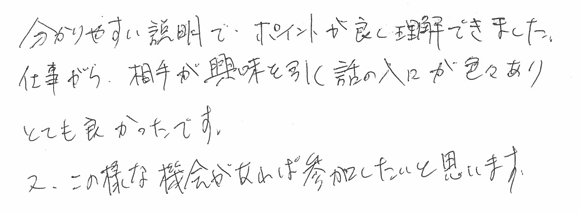 分かりやすい説明で、ポイントが良く理解できました。
仕事がら、相手が興味を引く話の入口が色々あり
とても良かったです。
又、この様な機会があれば参加したいと思います。